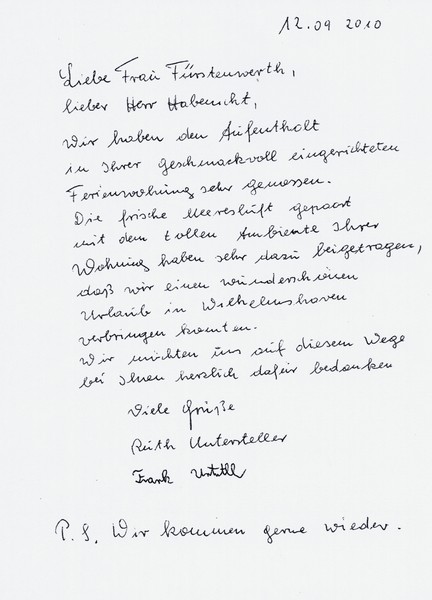 12.09 2010
Liebe Frau Fürstenwerth,
lieber Herr Habenicht,
Wir haben den Aufenthalt
in Ihrer geschmackvoll eingerichteten
Ferienwohnung sehr genossen.
Die frische Meeresluft gepaart
mit dem tollen Ambiente Ihrer
Wohnung haben sehr dazu beigetragen,
daß wir einen wunderschönen
Urlaub in Wilhelmshaven
verbringen konnten.
Wir möchten uns auf diesem Wege
bei Ihnen herzlich dafür bedanken
Viele Grüße
Ruth Untersteller
Frank
P.S. Wir kommen gerne wieder.